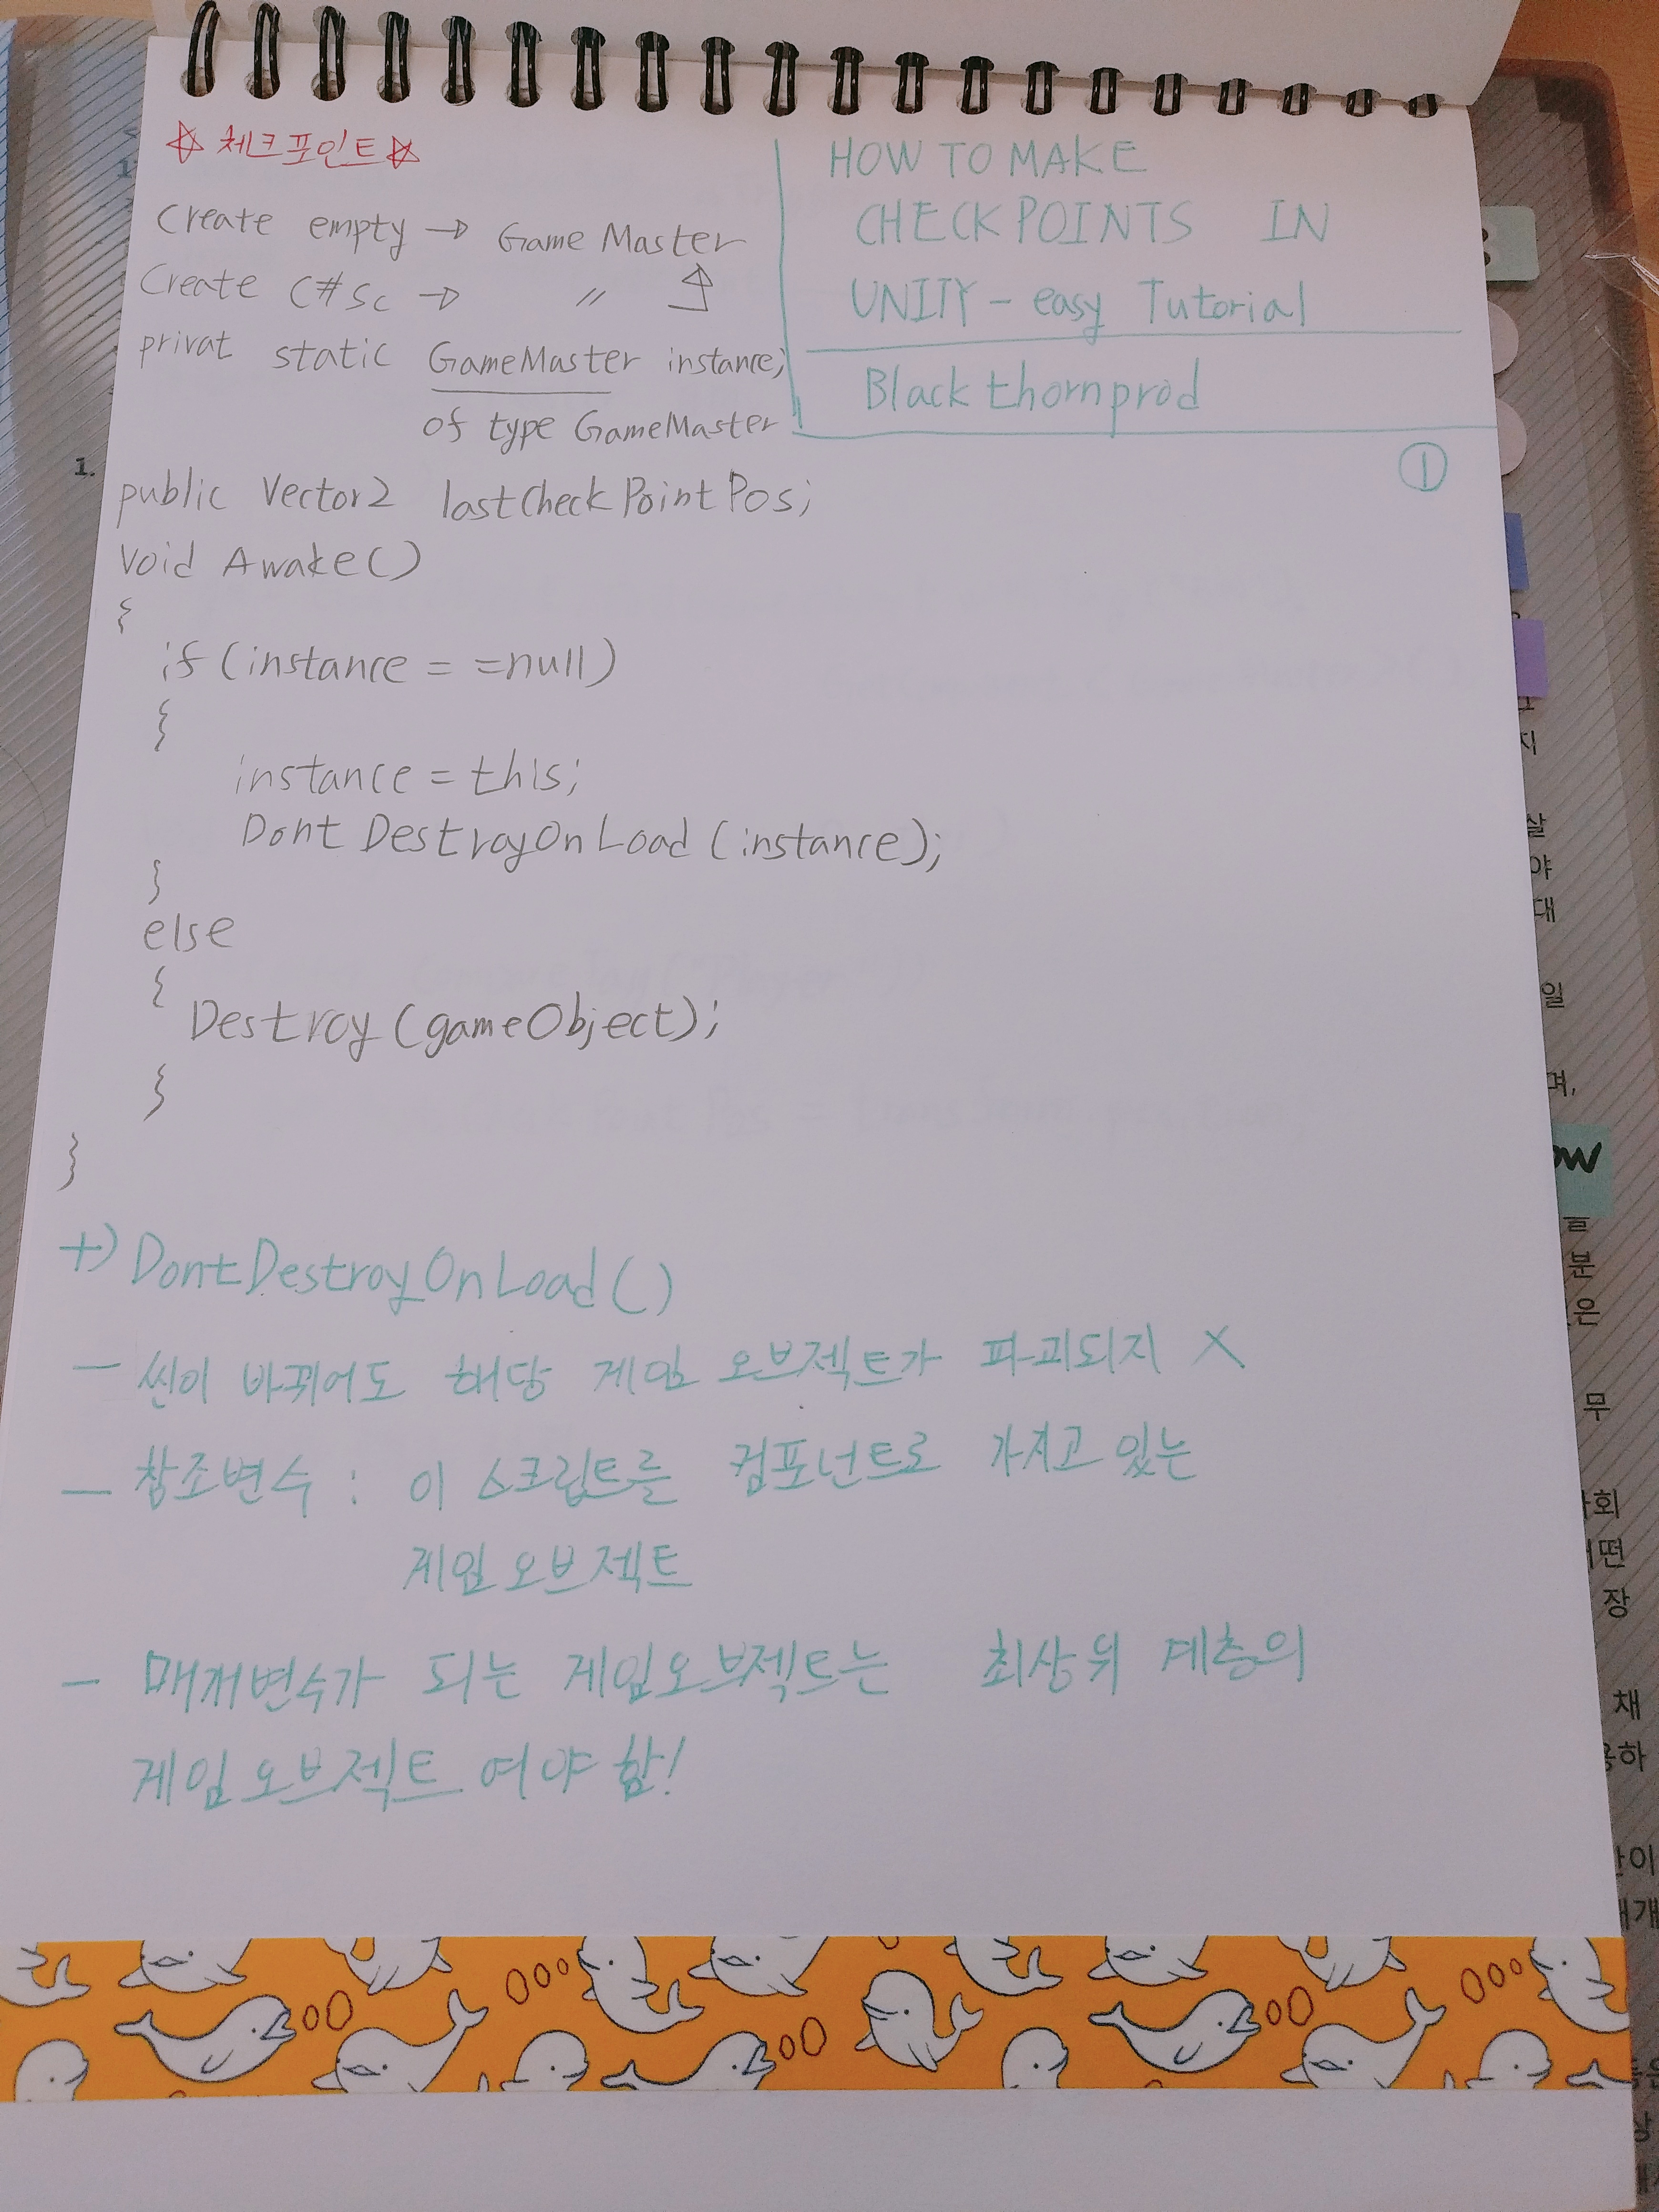 ☆ 체크포인트 ☆
Create empty → GameMaster
Create C# Sc → 〃
privat static GameMaster instance;
of type GameMaster
HOW TO MAKE
CHECKPOINTS IN
UNITY - easy Tutorial
Blackthornprod
①
public Vector2 lastCheckPointPos;
void Awake()
{
if (instance = =null)
{
instance = this;
DontDestroyOnLoad (instance);
}
else
{
Destroy (gameObject);
}
}
+) DontDestroyOnLoad ( )
- 씬이 바뀌어도 해당 게임 오브젝트가 파괴되지 X
- 참조변수 : 이 스크립트를 컴포넌트로 가지고 있는
게임 오브젝트
- 매개변수가 되는 게임오브젝트는 최상위 계층의
게임 오브젝트 여야 함!
1.
지
살
야
대
일
며,
ow
를
분
은
무
회
떤
장
채
하
이
개